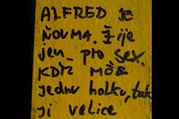 ALFRED JE
ŇOUMA. Žije
jen pro sex.
KDYŽ MÁ
jednu holku, tak
ji velice